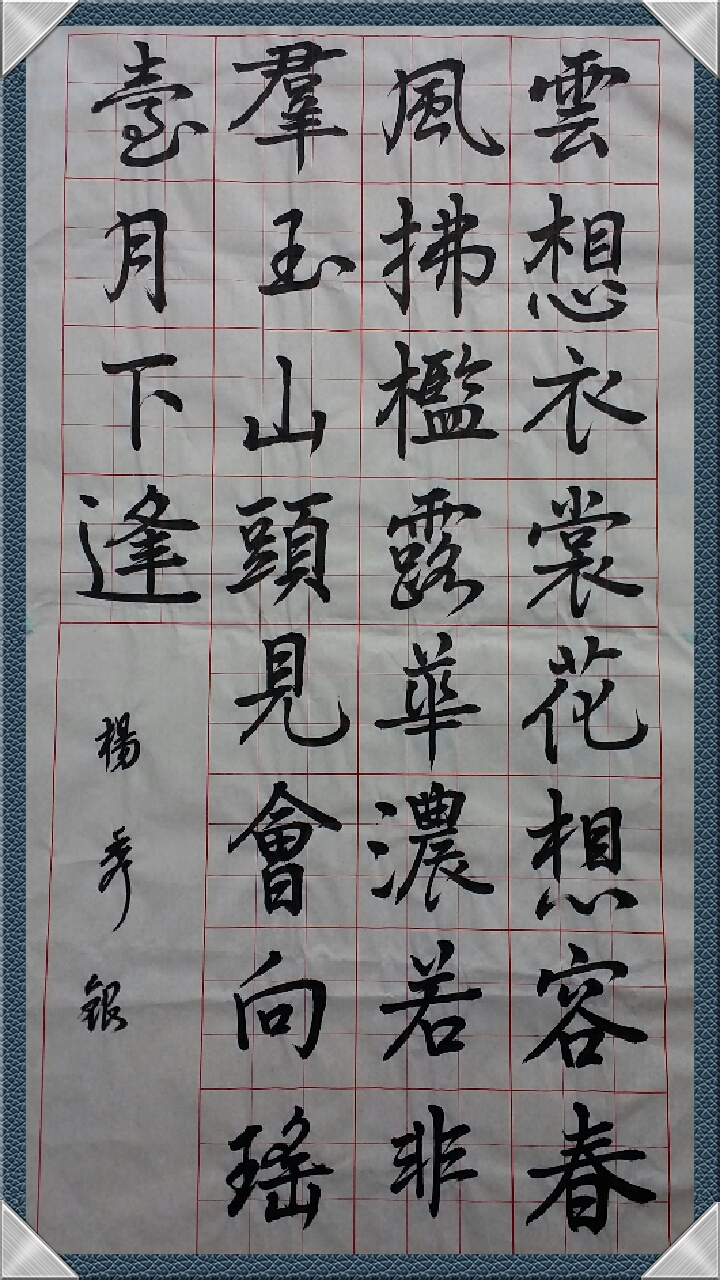 雲想衣裳花想容春
風拂檻露華濃若非
羣玉山頭見會向瑤
臺月下逢
楊秀銀